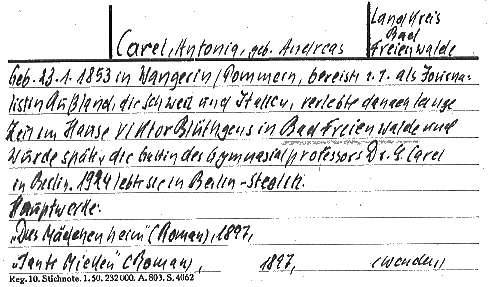 Carel, Antonie, geb. Andreae
Landkreis
Bad
Freienwalde
Geb. 23.1.1853 in Wangerin/Pommern, bereiste z.T. als Journa-
listin Rußland, die Schweiz und Italien, verlebte danach lange
Zeit im Hause Viktor Blüthgens in Bad Freienwalde und
wurde später die Gattin des Gymnasialprofessors Dr. G. Carel
in Berlin. 1924 lebte sie in Berlin-Steglitz.
Hauptwerke:
„Das Mädchenheim" (Roman), 1897,
„Tante Mielken" (Roman), 1897, (wenden)
Reg. 10. Stichnote. 1. 50. 232 000. A. 803. S. 4062